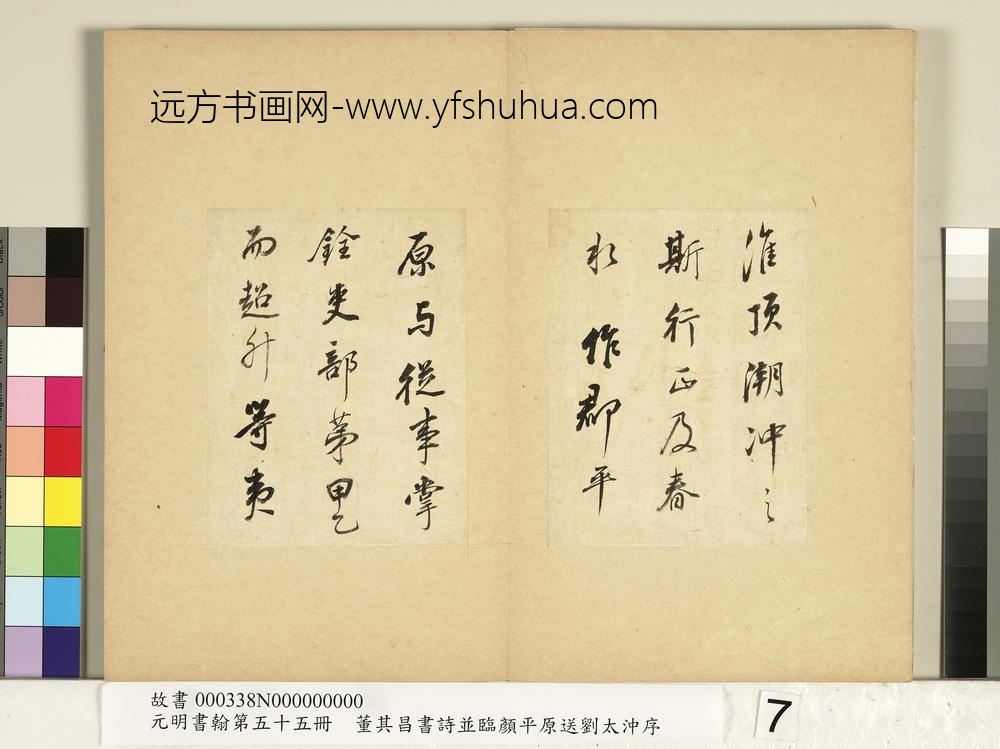 远方书画网-www.yfshuhua.com
淮頂潮冲之
斯行正及春
水 作郡平
原与從事掌
銓吏部第甲乙
而超升等夷
故書 000338N000000000
元明書翰第五十五冊 董其昌書詩並臨顏平原送劉太沖序
7